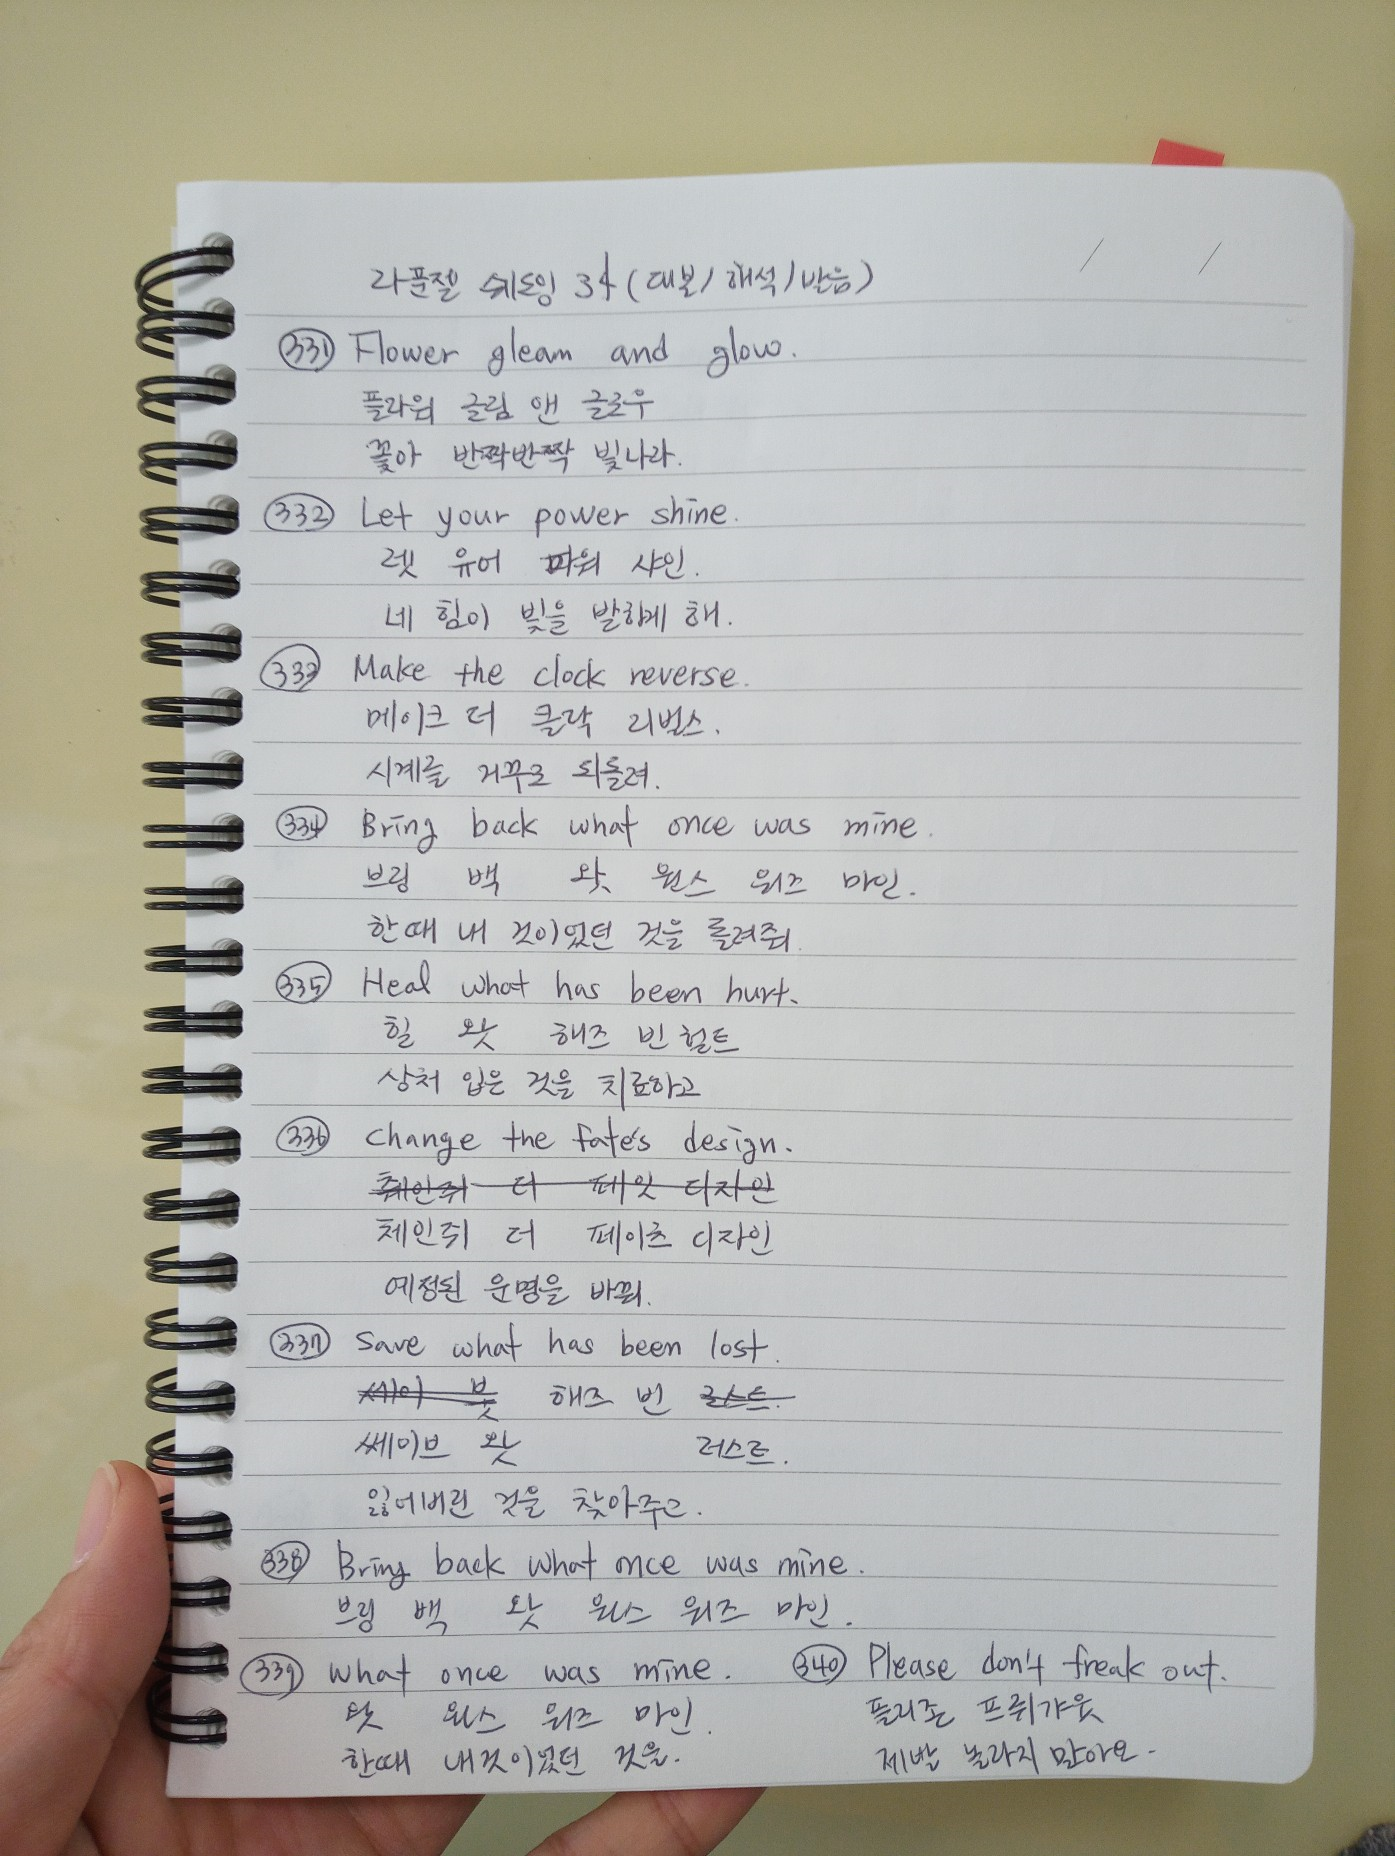 라푼젤 쉐도잉 34 (대본/해석/발음)
331 Flower gleam and glow.
플라워 글림 앤 글로우
꽃아 반짝반짝 빛나라.
332 Let your power shine.
렛 유어 파워 샤인.
네 힘이 빛을 발하게 해.
333 Make the clock reverse.
메이크 더 클락 리벌스.
시계를 거꾸로 되돌려.
334 Bring back what once was mine.
브링 백 왓 원스 워즈 마인.
한때 내 것이었던 것을 돌려줘.
335 Heal what has been hurt.
힐 왓 해즈 빈 헐트
상처 입은 것을 치료하고
336 Change the fate's design.
췌인쥐 더 페잇 디자인
체인쥐 더 페이츠 디자인
예정된 운명을 바꿔.
337 Save what has been lost.
쎄이 븟 해즈 번 로스트.
쎄이브 왓 러스트.
잃어버린 것을 찾아주고.
338 Bring back what once was mine.
브링 백 왓 원스 워즈 마인.
339 What once was mine. 340 Please don't freak out.
왓 원스 워즈 마인. 플리존 프뤼캬웃
한때 내것이었던 것을. 제발 놀라지 말아요.